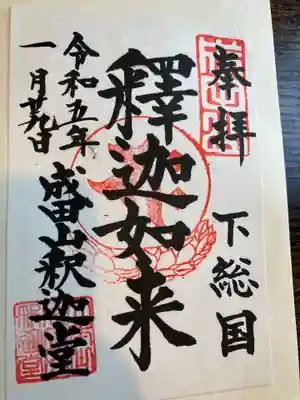 奉拝
下総国
釋迦如来
令和五年
一月廿九日
成田山釈迦堂